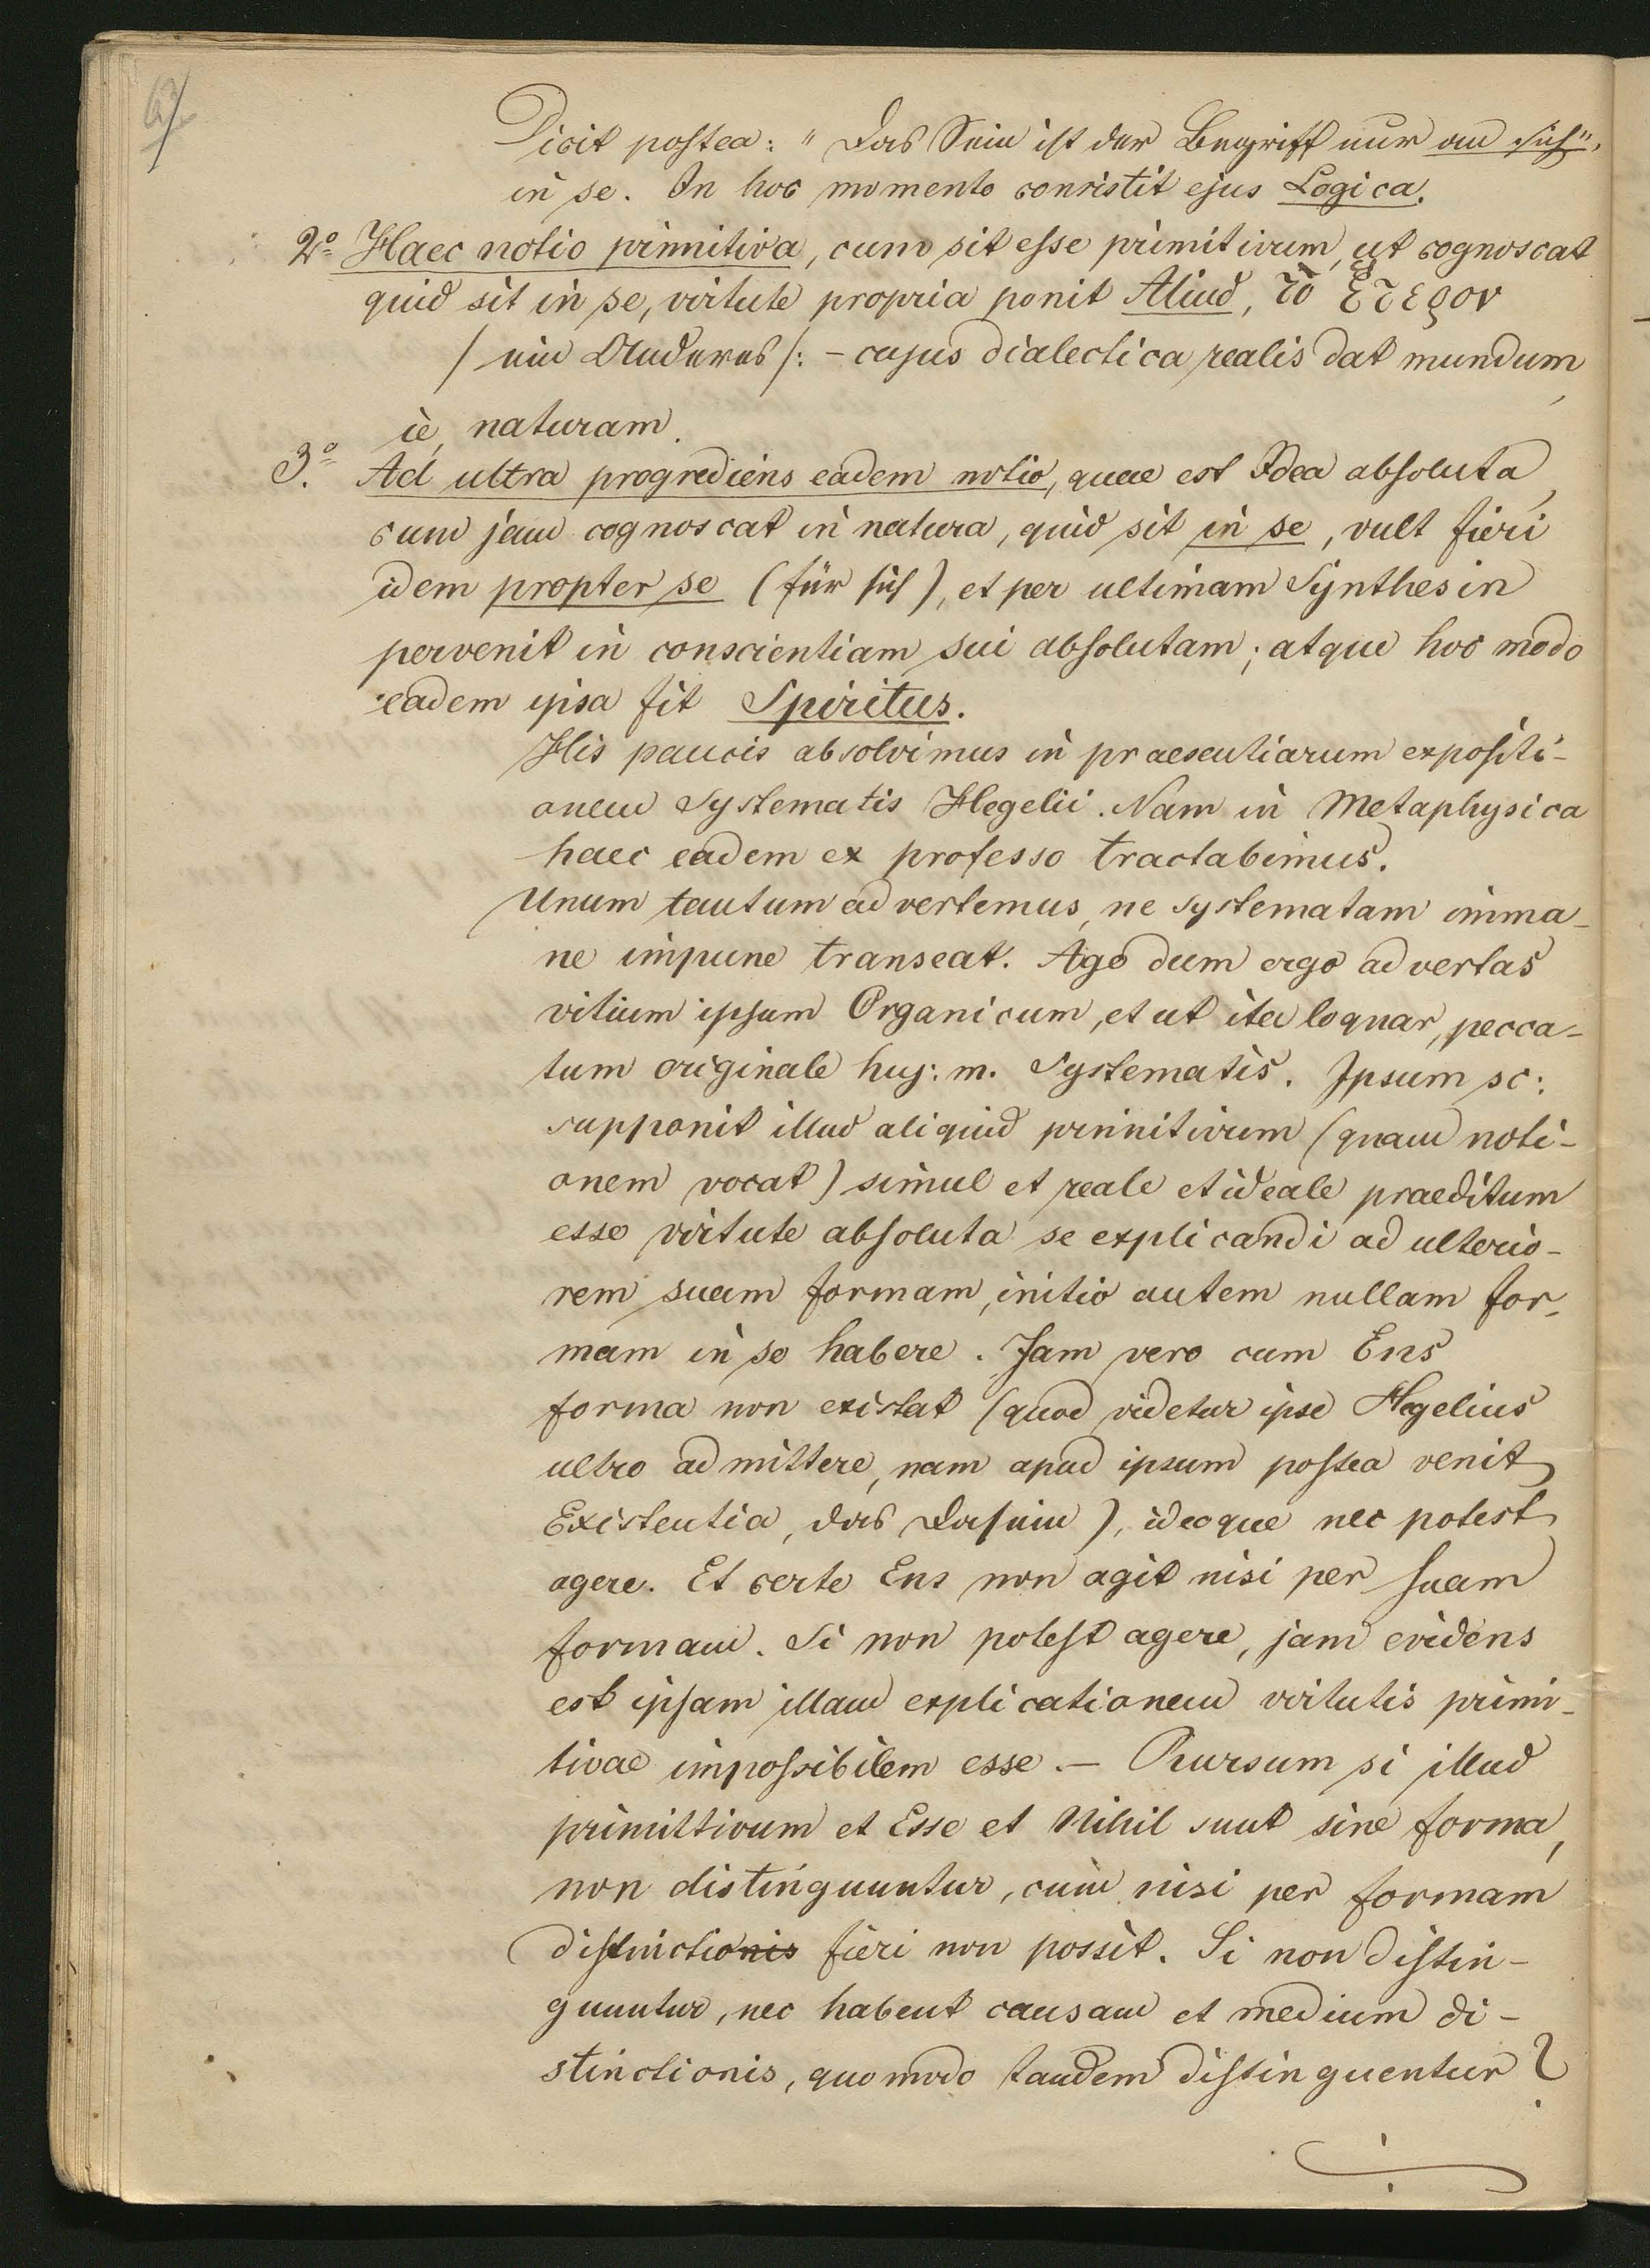 62
Dicit postea: "Das Sein ist der Begriff nur an sich",
in se. In hoc momento consistit ejus Logica.
2o Haec notio primitiva, cum sit esse primitivum, ut cognoscat
quid sit in se, virtute propria ponit Aliud, τὸ ἕτερον
/ ein Anderes /: – cujus dialectica realis dat mundum,
ie, naturam.
3o. Ad ultra progrediens eadem notio, quae est Idea absoluta,
cum jam cognoscat in natura, quid sit in se, vult fieri
idem propter se (für sich), et per ultimam Synthesin
pervenit in conscientiam sui absolutam; atque hoc modo
eadem ipsa fit Spiritus.
His paucis absolvimus in praesentiarum expositi-
onem Systematis Hegelii. Nam in Metaphysica
haec eadem ex professo tractabimus.
Unum tantum advertemus, ne systematam imma-
ne impune transeat. Ago dum ergo advertas
vitium ipsum Organicum, et ut ita loquar, pecca-
tum originale huj: m. Systematis. Ipsum sc:
supponit illud aliquid primitivum (quam noti-
onem vocat) simul et reale et ideale praeditum
esse virtute absoluta se explicandi ad ulterio-
rem suam formam, initio autem nullam for-
mam in se habere. Jam vero cum Ens
forma non existat (quod videtur ipse Hegelius
ultro admittere, nam apud ipsum postea venit
Existentia, das Dasein), ideoque nec potest
agere. Et certe Ens non agit nisi per suam
formam. Si non potest agere, jam evidens
est ipsam illam explicationem virtutis primi-
tivae impossibilem esse. – Rursum si illud
primittivum et Esse et Nihil sunt sine forma,
non distinguuntur, cum nisi per formam
distinctionis fieri non possit. Si non distin-
guuntur, nec habent causam et medium di-
stinctionis, quomodo tandem distinguentur?